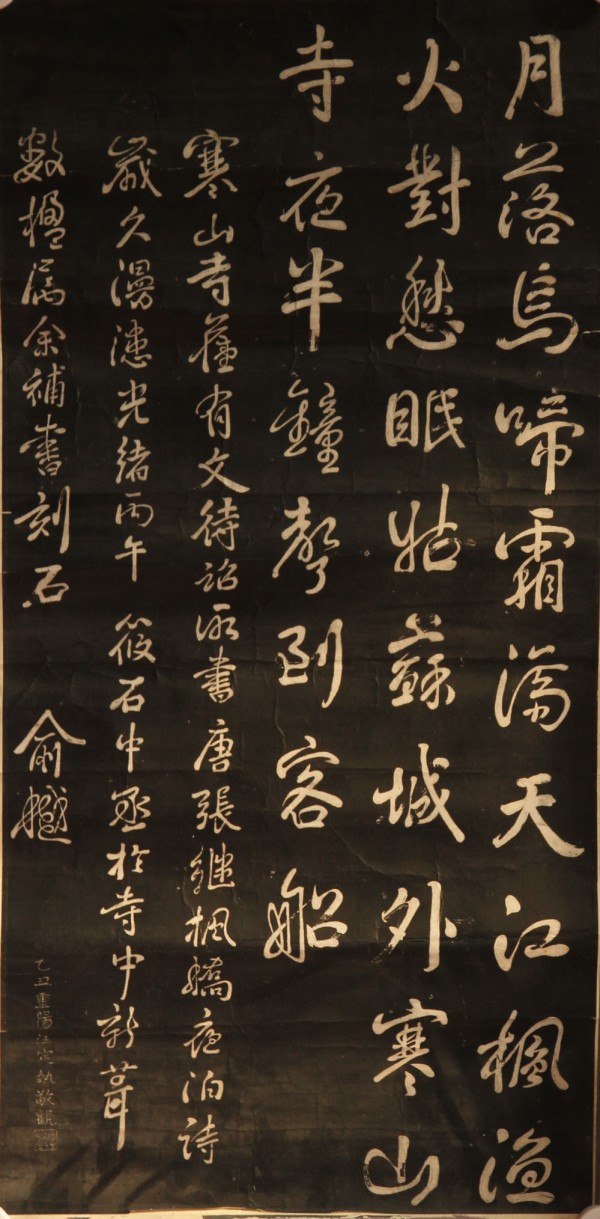 月落烏啼霜滿天江楓漁
火對愁眠姑蘇城外寒山
寺夜半鐘聲到客船
寒山寺舊有文待詔所書唐張繼楓橋夜泊詩
歲久漫漶光緒丙午 筱石中丞於寺中新葺
數楹屬余補書刻石 俞樾
乙丑重陽
敬觀